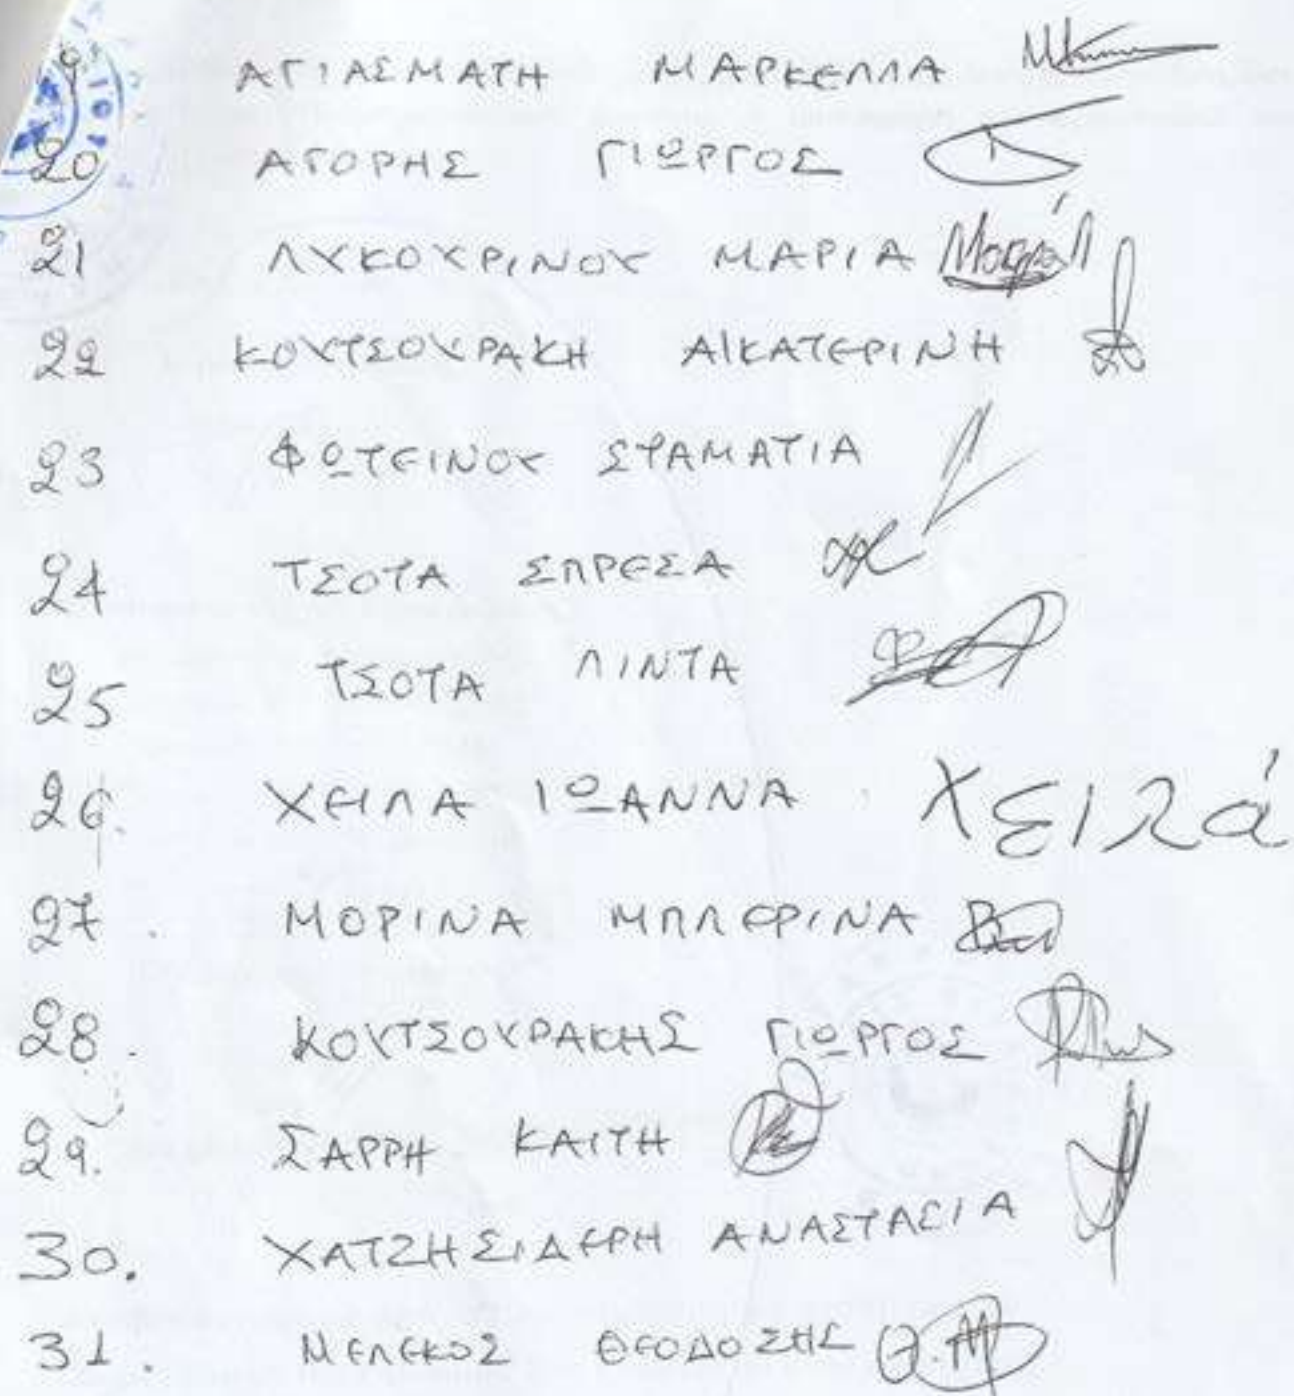 ΑΓΙΑΣΜΑΤΗ ΜΑΡΚΕΛΛΑ
20 ΑΓΟΡΗΣ ΓΙΩΡΓΟΣ
21 ΛΥΚΟΥΡΙΝΟΥ ΜΑΡΙΑ
22 ΚΟΥΤΣΟΥΡΑΚΗ ΑΙΚΑΤΕΡΙΝΗ
23 ΦΩΤΕΙΝΟΥ ΣΤΑΜΑΤΙΑ
24 ΤΣΟΤΑ ΣΠΡΕΣΑ
25 ΤΣΟΤΑ ΛΙΝΤΑ
26. ΧΕΙΛΑ ΙΩΑΝΝΑ Χειλά
27. ΜΟΡΙΝΑ ΜΠΛΕΡΙΝΑ
28. ΚΟΥΤΣΟΥΡΑΚΗΣ ΓΙΩΡΓΟΣ
29. ΣΑΡΡΗ ΚΑΙΤΗ
30. ΧΑΤΖΗΣΙΔΕΡΗ ΑΝΑΣΤΑΣΙΑ
31. ΜΕΛΕΚΟΣ ΘΕΟΔΟΣΗΣ Θ.Μ